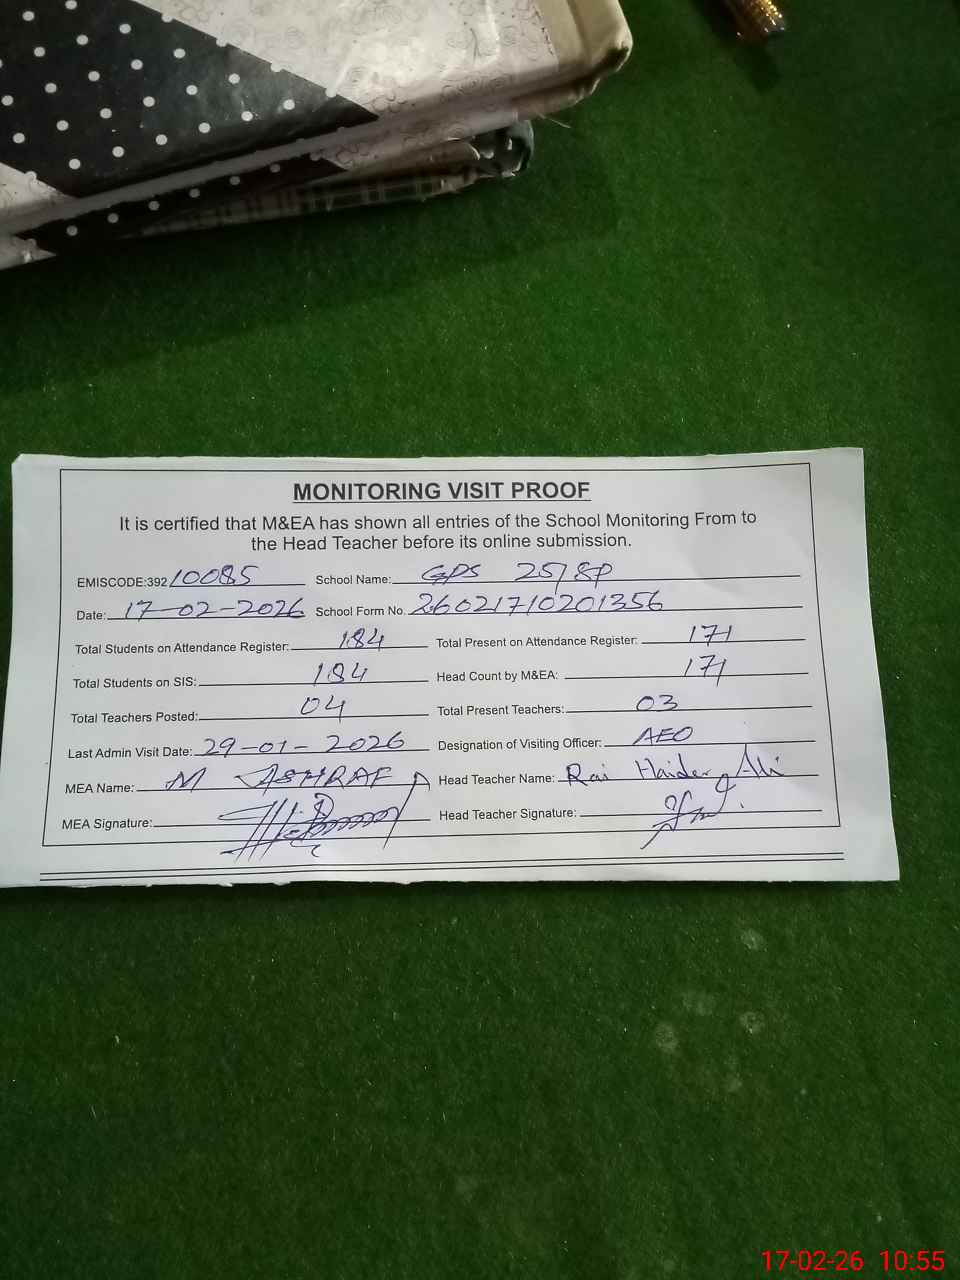 MONITORING VISIT PROOF
It is certified that M&EA has shown all entries of the School Monitoring From to
the Head Teacher before its online submission.
EMISCODE:392 10085 School Name: GPS 25/SP
Date: 17-02-2026 School Form No. 26021710201356
Total Students on Attendance Register: 184 Total Present on Attendance Register: 171
Total Students on SIS: 184 Head Count by M&EA: 171
Total Teachers Posted: 04 Total Present Teachers: 03
Last Admin Visit Date: 29-01-2026 Designation of Visiting Officer: AEO
MEA Name: M ASHRAF Head Teacher Name: Rai Haider Ali
MEA Signature: Head Teacher Signature:
17-02-26 10:55